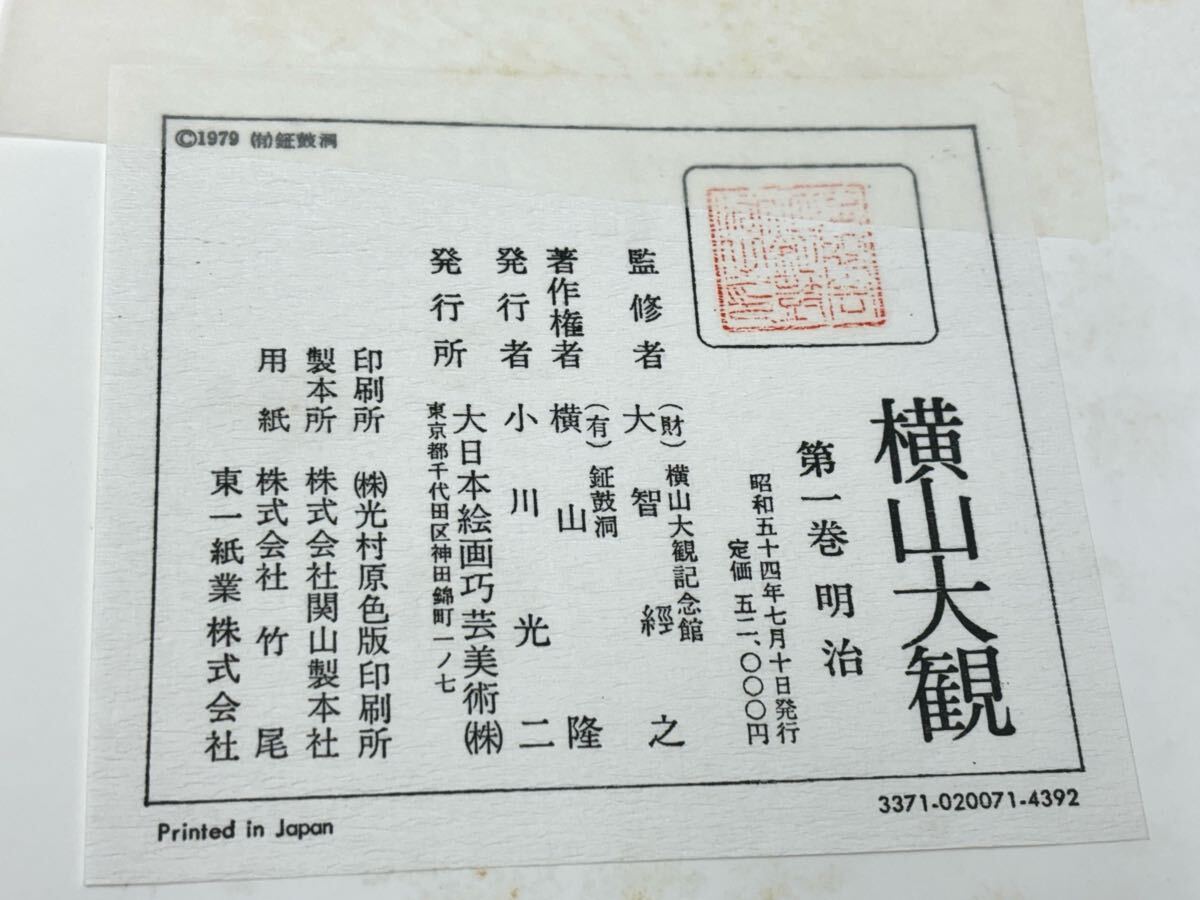 ©1979 ㈲鉦鼓洞
横山大観
第一巻 明治
昭和五十四年七月十日発行
定価 五二、〇〇〇円
(財)横山大観記念館
監修者 大智經之
(有)鉦鼓洞
著作権者 横山隆
発行者 小川光二
発行所 大日本絵画巧芸美術㈱
東京都千代田区神田錦町一ノ七
印刷所 ㈱光村原色版印刷所
製本所 株式会社関山製本社
用紙 株式会社竹尾
東一紙業株式会社
3371-020071-4392
Printed in Japan